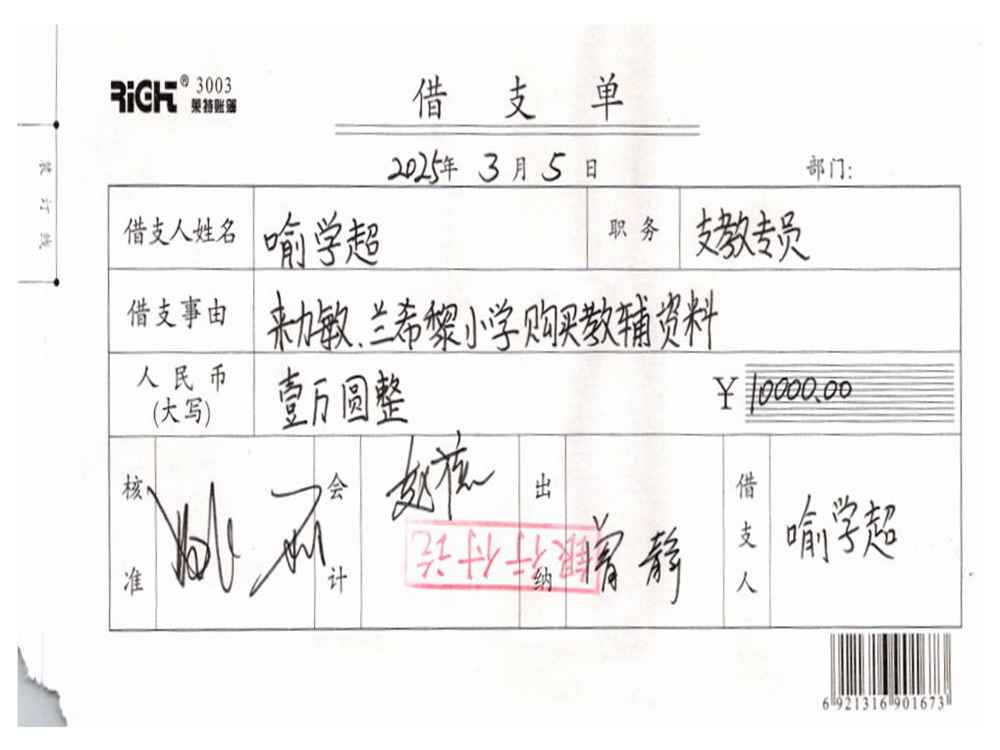 RIGHT® 3003
莱特账簿
借支单
2025年3月5日 部门:
装订线
借支人姓名 喻学超 职务 支教专员
借支事由 来力敏、兰希黎小学购买教辅资料
人民币(大写) 壹万圆整 ¥10000.00
核准 会计 出纳 曾静 借支人 喻学超
银行付讫
6 921316 901673